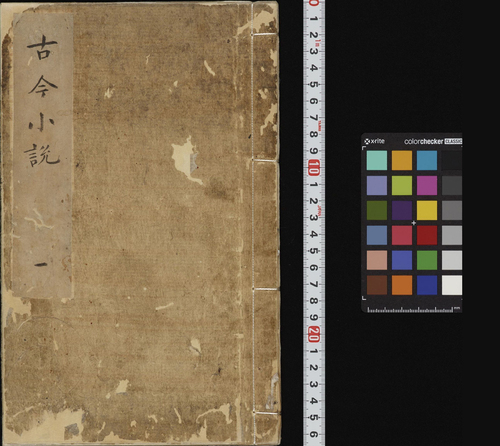 古今小説
一
0 1 2 3 4 5 6 7 8 9 10 1 2 3 4 5 6 7 8 9 20 1 2 3 4 5 6
x-rite colorchecker CLASSIC